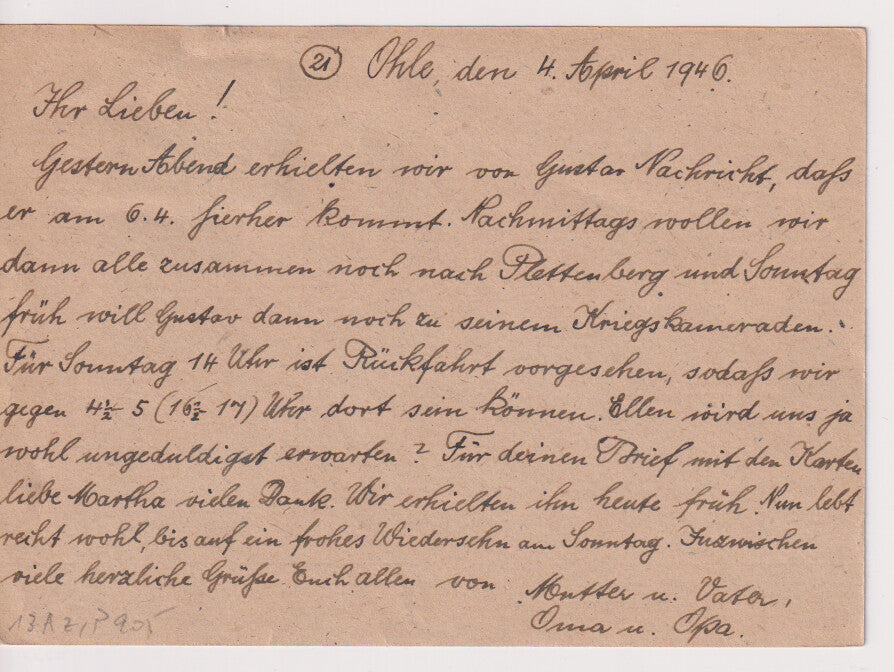 (21) Ohle, den 4. April 1946.
Ihr Lieben!
Gestern Abend erhielten wir von Gustav Nachricht, daß
er am 6.4. hierher kommt. Nachmittags wollen wir
dann alle zusammen noch nach Plettenberg und Sonntag
früh will Gustav dann noch zu seinem Kriegskameraden.
Für Sonntag 14 Uhr ist Rückfahrt vorgesehen, sodaß wir
gegen 4½ - 5 (16½ - 17) Uhr dort sein können. Ellen wird uns ja
wohl ungeduldigst erwarten? Für deinen Brief mit den Karten
liebe Martha vielen Dank. Wir erhielten ihn heute früh. Nun lebt
recht wohl, bis auf ein frohes Wiedersehn am Sonntag. Inzwischen
viele herzliche Grüße Euch allen von Mutter u. Vater,
Oma u. Opa.